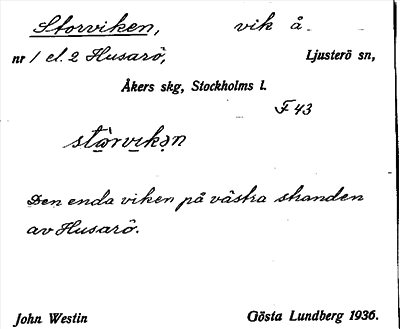 Storviken, vik å.
nr 1 el. 2 Husarö, Ljusterö sn,
Åkers skg, Stockholms l.
F 43
stòrvikən
Den enda viken på västra stranden
av Husarö.
John Westin Gösta Lundberg 1936.